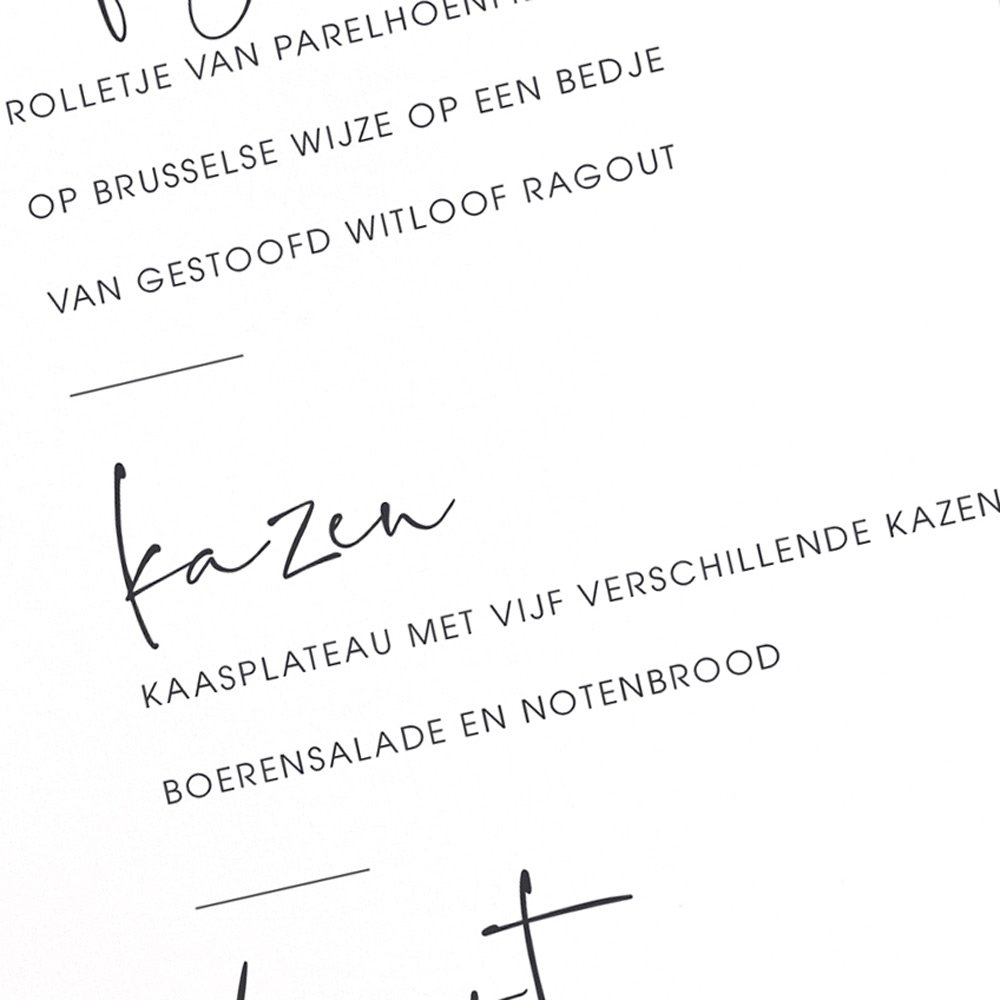 ROLLETJE VAN
OP BRUSSELSE WIJZE OP EEN BEDJE
VAN GESTOOFD WITLOOF RAGOUT
kazen
KAASPLATEAU MET VIJF VERSCHILLENDE KAZEN
BOERENSALADE EN NOTENBROOD